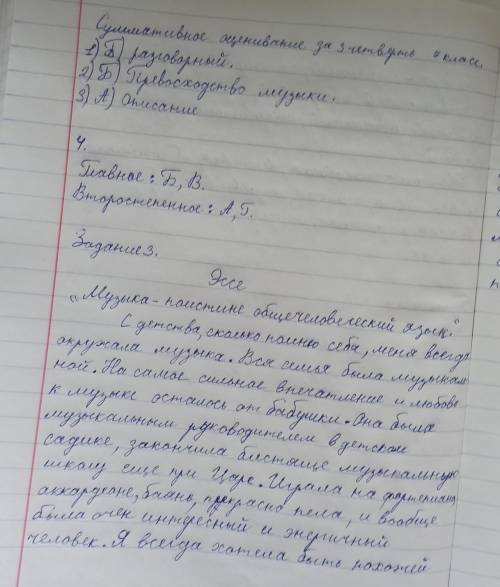 Суммативное оценивание за 3 четверть 4 класс.
1) Б) разговорный.
2) Б) Превосходство музыки.
3) А) Описание
4.
Главное: Б, В.
Второстепенное: А, Г.
Задание 3.
Эссе
„Музыка - поистине общечеловеческий язык."
С детства, сколько помню себя, меня всегда
окружала музыка. Вся семья была музыкаль
ной. Но самое сильное впечатление и любовь
к музыке осталось от бабушки. Она была
музыкальным руководителем в детском
садике, закончила блестяще музыкальную
школу еще при Царе. Играла на фортепиано
аккардеоне, баяне, прекрасно пела, и вообще
была очен интересный и энергичный
человек. Я всегда хотела быть похожей